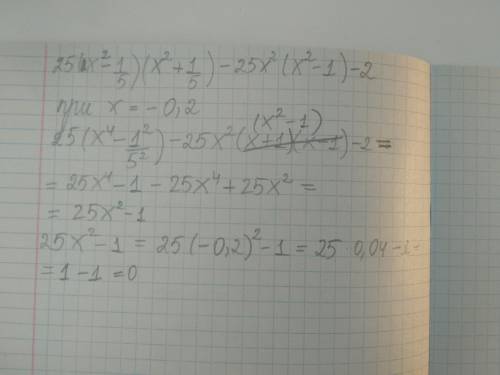 25(x²-1/5)(x²+1/5)-25x²(x²-1)-2
при x = -0,2
(x²-1)
25(x⁴-1²/5²)-25x²(x+1)(x-1)-2=
= 25x⁴-1-25x⁴+25x² =
= 25x²-1
25x²-1 = 25(-0,2)²-1 = 25·0,04-1=
= 1-1 =0